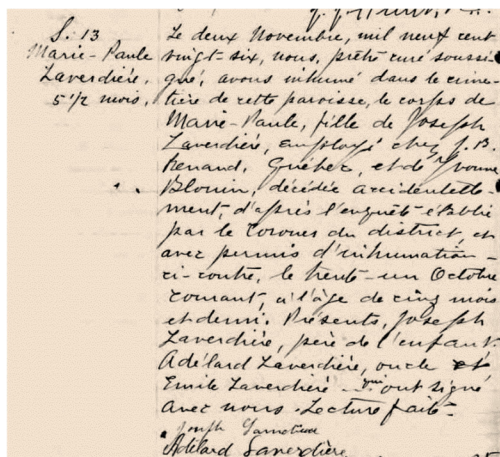 S. 13
Marie-Paule
Laverdière,
5 1/2 mois.
Le deux Novembre, mil neuf cent
vingt-six, nous, prêtre curé soussi-
gné, avons inhumé dans le cime-
tière de cette paroisse, le corps de
Marie-Paule, fille de Joseph
Laverdière, employé chez J. B.
Renaud, Québec, et de Yvonne
Blouin, décédée accidentelle-
ment, d'après l'enquête établie
par le Coroner du district, et
avec permis d'inhumation
ci-contre, le trente-un Octobre
courant, à l'âge de cinq mois
et demi. Présents, Joseph
Laverdière, père de l'enfant,
Adélard Laverdière, oncle et
Emile Laverdière qui ont signé
avec nous. Lecture faite.
Joseph
Adélard Laverdière